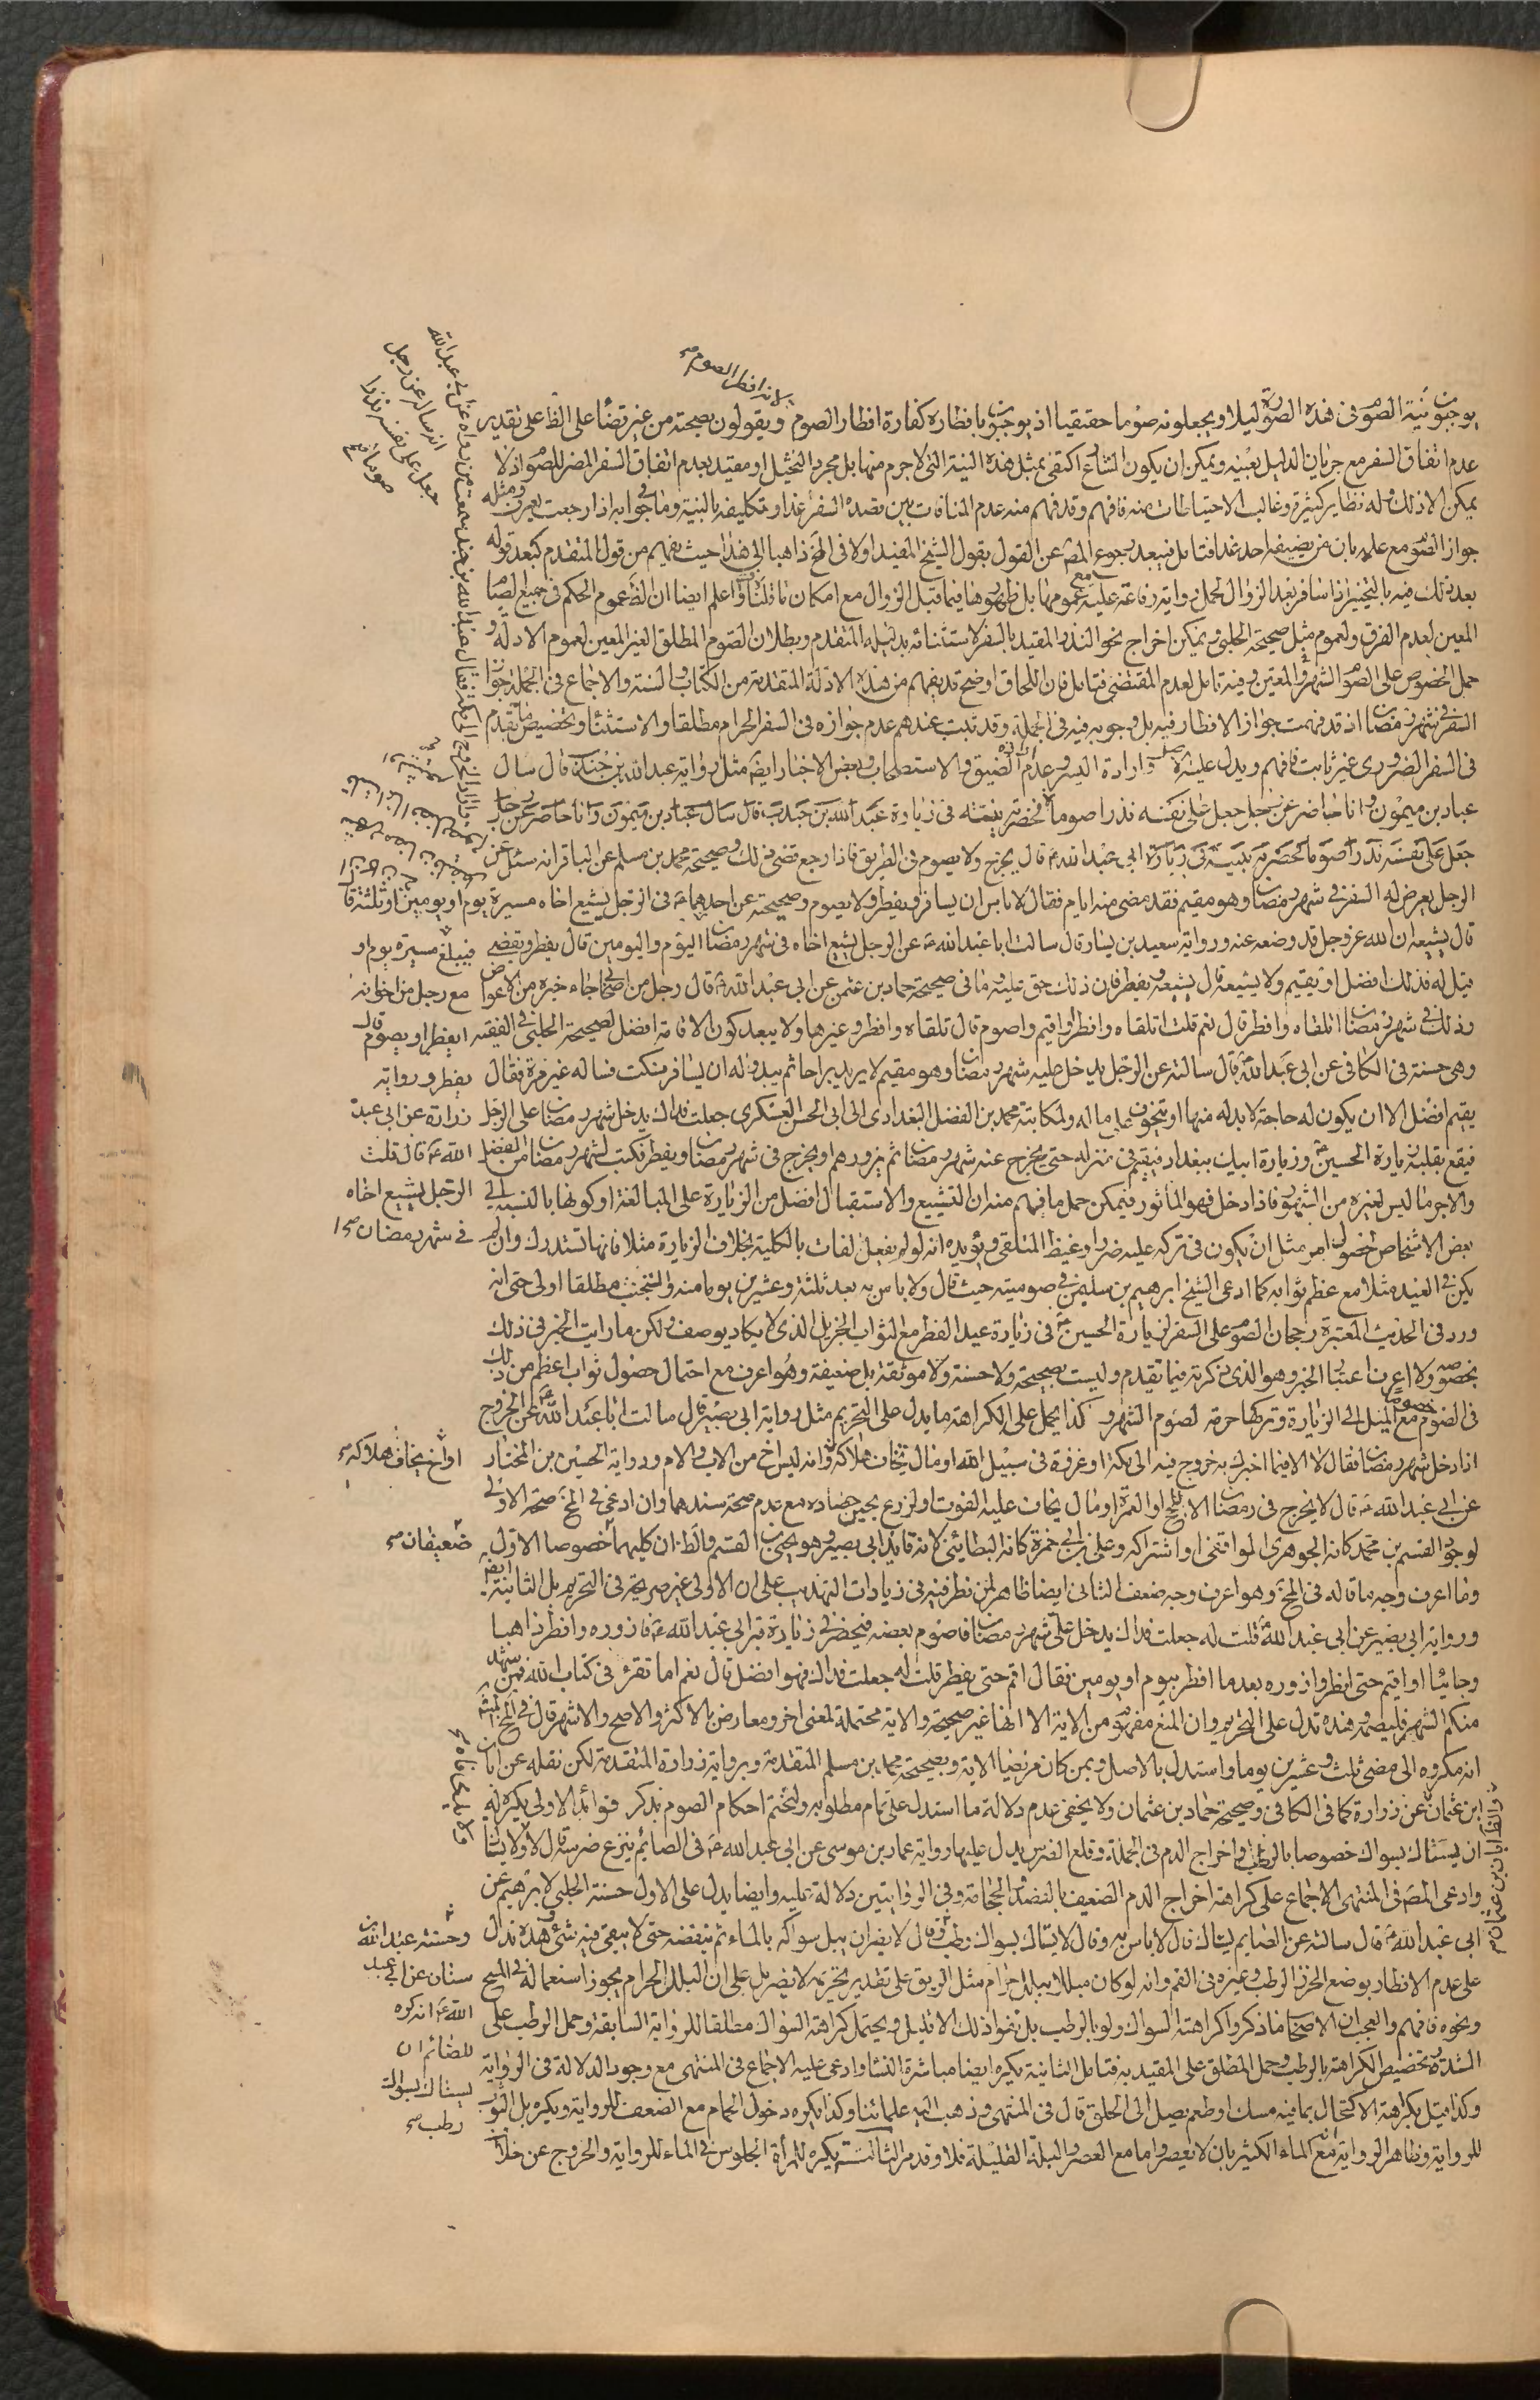 يوجبون نية الصوم فى هذه الصورة ليلا ويجعلونه صوما حقيقيا اذ يوجبون بافطاره كفارة افطار الصوم ويقولون بصحته من غير قضاء على الظ على تقدير
عدم اتفاق السفر مع جريان الدليل بعينه ويمكن ان يكون الشارع اكتفى بمثل هذه النية التى لاجزم منها بل مجرد التخيل او مقيد بعدم اتفاق السفر المضر للصوم اذ لا
يمكن الا ذلك وله نظاير كثيرة وغالب الاحتياطات منه فافهم وقد فهم منه عدم المنافات بين قصده السفر غدا وتكليفه بالنية وما فى جوابه اذا رجعت
جواز الصوم مع علمه بان من يضيفه احد غدا فتامل فيبعد رجوع المص عن القول بقول الشيخ المفيد اولا فى المخ ذاهبا الى هذا حيث يفهم من قول المتقدم كبعد قوله
بعد ذلك فيه بالتخيير اذا سافر بعد الزوال لحمل رواية رفاعة عليه مع عمومها بل ظهورها فيما قبل الزوال مع امكان ما قلناه واعلم ايضا ان الظ عموم الحكم فى جميع الصيام
المعين لعدم الفرق ولعموم مثل صحيحة الحلبى ويمكن اخراج نحو النذر المقيد بالسفر لاستثنائه بدليله المتقدم وبطلان الصوم المطلق الغير المعين لعموم الادلة و
حمل الخصوص على الصوم الشهر والمعين وفيه تامل لعدم المقتضى فتامل فان اللحاق اوضح قد يفهم من هذه الادلة المتقدمة من الكتاب والسنة والاجماع فى الجملة جواز
السفر فى شهر رمضان اذ قد فهمت جواز الافطار فيه بل وجوبه فيه فى الجملة وقد ثبت عندهم عدم جوازه فى السفر الحرام مطلقا والاستثناء وتخصيص ما تقدم
فى السفر الضرورى غير ثابت فافهم ويدل عليه الاصل وارادة اليسر وعدم ارادة الضيق والاستصحاب وبعض الاخبار ايضا مثل رواية عبد الله بن جندب قال سال
عباد بن ميمون وانا حاضر عن رجل جعل على نفسه نذرا صوما فحضرته نيته فى زيارة عبد الله بن جندب قال سال عباد بن ميمون وانا حاضر عن رجل
جعل على نفسه نذرا صوما فحضرته نيته فى زيارة ابى عبد الله ع قال يخرج ولا يصوم فى الطريق فاذا رجع قضى ذلك وصحيحة محمد بن مسلم عن الباقر انه سئل عن
الرجل يعرض له السفر فى شهر رمضان وهو مقيم فقد مضى منه ايام فقال لا باس ان يسافر ويفطر ولا يصوم وصحيحته عن احدهما ع فى الرجل يشيع اخاه مسيرة يوم او يومين او ثلثة قال
قال يشيعه ان الله عز وجل قد وضعه عنه ورواية سعيد بن يسار قال سالت ابا عبد الله ع عن الرجل يشيع اخاه فى شهر رمضان اليوم واليومين قال يفطر ويقضى فيبلغ مسيرة يوم او
قيل له فذلك افضل او يقيم ولا يشيعه قال يشيعه ويفطر فان ذلك حق عليه وما فى صحيحة حماد بن عثمن عن ابى عبد الله ع قال رجل من اصحابنا جاء خبره من الاعوص مع رجل من اخوانه
وذلك فى شهر رمضان اتلقاه وافطر قال نعم قلت اتلقاه وافطر او اقيم واصوم قال تلقاه وافطر وغيرها ولا يبعد كون الاقامة افضل لصحيحة الحلبى فى الفقيه ايفطر او يصوم قال
وهى حسنة فى الكافى عن ابى عبد الله ع قال سالته عن الرجل يدخل عليه شهر رمضان وهو مقيم لا يريد براحا ثم يبدو له ان يسافر فسكت فساله غير مرة فقال يفطر ورواية
يقيم افضل الا ان يكون له حاجة لا بد له منها او يتخوف على ماله ولمكاتبة محمد بن الفضل البغدادى الى ابى الحسن العسكرى جعلت فداك يدخل شهر رمضان على الرجل زرارة عن ابى عبد
فيقع بقلبه زيارة الحسين ع وزيارة ابيك ببغداد فيقيم فى منزله حتى يخرج عنه شهر رمضان ثم يزورهم او يخرج فى شهر رمضان ويفطر فكتب لشهر رمضان من الفضل الله ع قال قلت
والاجر ما ليس لغيره من الشهور فاذا دخل فهو الماثور فيمكن حمل ما فهم منه ان التشييع والاستقبال افضل من الزيارة على المبالغة او كونها بالنسبة الى الرجل يشيع اخاه
بعض الاشخاص لخصوص امر مثل ان يكون فى تركه عليه ضررا وغيظ المتلقى ويؤيده انه لو لم يفعل لفات بالكلية بخلاف الزيارة مثلا فانها تستدرك وان لم فى شهر رمضان صح
يكن فى العيد مثلا مع عظم ثوابه كما ادعى الشيخ ابرهيم بن سليمن فى صوميته حيث قال ولا باس به بعد ثلثة وعشرين يوما منه والتجنب مطلقا اولى حتى انه
ورد فى الحديث المعتبرة رجحان الصوم على السفر لزيارة الحسين ع فى زيارة عيد الفطر مع الثواب الجزيل الذى لا يكاد يوصف ولكن ما رايت الخبر فى ذلك
بخصوصه ولا اعرف اعتبار الخبر وهو الذى ذكرته فيما تقدم وليست بصحيحة ولا حسنة ولا موثقة بل ضعيفة وهو اعرف مع احتمال حصول ثواب اعظم من ذلك
فى الصوم مع الميل الى الزيارة وتركها حرمة لصوم الشهر وكذا يحمل على الكراهة ما يدل على التحريم مثل رواية ابى بصير قال سالت ابا عبد الله ع عن الخروج
اذا دخل شهر رمضان فقال لا الا فيما اخبرك به خروج فيه الى مكة او غزوة فى سبيل الله او مال تخاف هلاكه وانه ليس اخ من الاب والام ورواية الحسين بن المختار او اخ يخاف هلاكه صح
عن ابى عبد الله ع قال لا يخرج فى رمضان الا للحج او العمرة او مال يخاف عليه الفوت او لزرع يحين حصاده مع عدم صحة سندهما وان ادعى فى المخ صحة الاولى
لوجود القسم بن محمد كانه الجوهرى الواقفى او اشتراكه وعلى بن ابى حمزة كانه البطائنى لانه قايد ابى بصير وهو يحيى بن القسم والظ ان كليهما خصوصا الاول ضعيفان صح
وما اعرف وجه ما قاله فى المخ وهو اعرف وجه ضعف الثانى ايضا ظاهر لمن نظر فيه فى زيادات التهذيب على ان الاولى غير صريحة فى التحريم بل الثانية ايضا
ورواية ابى بصير عن ابى عبد الله ع قلت له جعلت فداك يدخل على شهر رمضان فاصوم بعضه فيحضرنى زيارة قبر ابى عبد الله ع فازوره وافطر ذاهبا
وجائيا او اقيم حتى افطر وازوره بعد ما افطر بيوم او يومين فقال اقم حتى يفطر قلت له جعلت فداك فهو افضل قال نعم اما تقرء فى كتاب الله فمن شهد
منكم الشهر فليصمه هذه تدل على التحريم وان المنع مفهوم من الاية الا انها غير صحيحة والاية محتملة لمعنى اخر ومعارض بالاكثر والاصح والاشهر قال فى المخ
انه مكروه الى مضى ثلث وعشرين يوما واستدل بالاصل وبمن كان مريضا الاية وبصحيحة محمد بن مسلم المتقدمة وبرواية زرارة المتقدمة لكن نقله عن ابان
ابن عثمان عن زرارة كما فى الكافى وصحيحة حماد بن عثمان ولا يخفى عدم دلالة ما استدل على تمام مطلوبه ولنختم احكام الصوم بذكر فوائد الاولى يكره له
ان يستاك بسواك خصوصا بالرطب واخراج الدم فى الجملة وقلع الضرس يدل عليها رواية عمار بن موسى عن ابى عبد الله ع فى الصائم ينزع ضرسه قال لا ولا يستاك
وادعى المص فى المنتهى الاجماع على كراهة اخراج الدم المضعف بالفصد والحجامة وفى الروايتين دلالة عليه وايضا يدل على الاول حسنة الحلبى لابرهيم عن
ابى عبد الله ع قال سالته عن الصايم يستاك قال لا باس به وقال لا يستاك بسواك رطب وقال لا يضر ان يبل سواكه بالماء ثم ينفضه حتى لا يبقى فيه شئ هذه تدل وحسنة عبد الله بن
على عدم الافطار بوضع الخرز الرطب وغيره فى الفم وانه لو كان مبللا ببلل حرام مثل الريق على تقدير تحريمه لا يضر بل على ان البلل الحرام يجوز استعماله فى المسح سنان عن ابى عبد
ونحوه فافهم والعجب ان الاصحاب ما ذكروا كراهة السواك ولو بالرطب بل نفوا ذلك الا قليل ويحتمل كراهة السواك مطلقا للرواية السابقة وحمل الرطب على الله ع انه كره
الشدة وتخصيص الكراهة بالرطب وحمل المطلق على المقيد به فتامل الثانية يكره ايضا مباشرة النساء وادعى عليه الاجماع فى المنتهى مع وجود الدلالة فى الرواية للصائم ان
وكذا قيل بكراهة الاكتحال بما فيه مسك او طعم يصل الى الحلق قال فى المنتهى وذهب اليه علمائنا وكذا يكره دخول الحمام مع الضعف للرواية ويكره بل الثوب يستاك بسواك
للرواية وظاهر الرواية منع الماء الكثير بان لا يعصر واما مع العصر والبلة القليلة فلا وقد مر الثالثة يكره للمرأة الجلوس فى الماء للرواية والخروج عن خلاف رطب صح